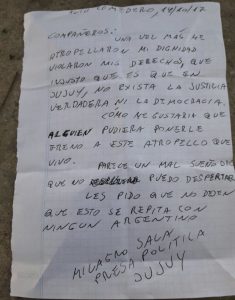 ALTO COMEDERO, 14/10/17
COMPAÑEROS: UNA VEZ MAS ME
ATROPELLARON MI DIGNIDAD
VIOLARON MIS DERECHOS, QUE
INJUSTO QUE ES QUE EN
JUJUY, NO EXISTA LA JUSTICIA
VERDADERA NI LA DEMOCRACIA.
COMO ME GUSTARIA QUE
ALGUIEN PUDIERA PONERLE
FRENO A ESTE ATROPELLO QUE
VIVO.
PARECE UN MAL SUEÑO DEL
QUE NO PUEDO DESPERTAR
LES PIDO QUE NO DEJEN
QUE ESTO SE REPITA CON
NINGUN ARGENTINO
MILAGRO SALA
PRESA POLITICA
JUJUY